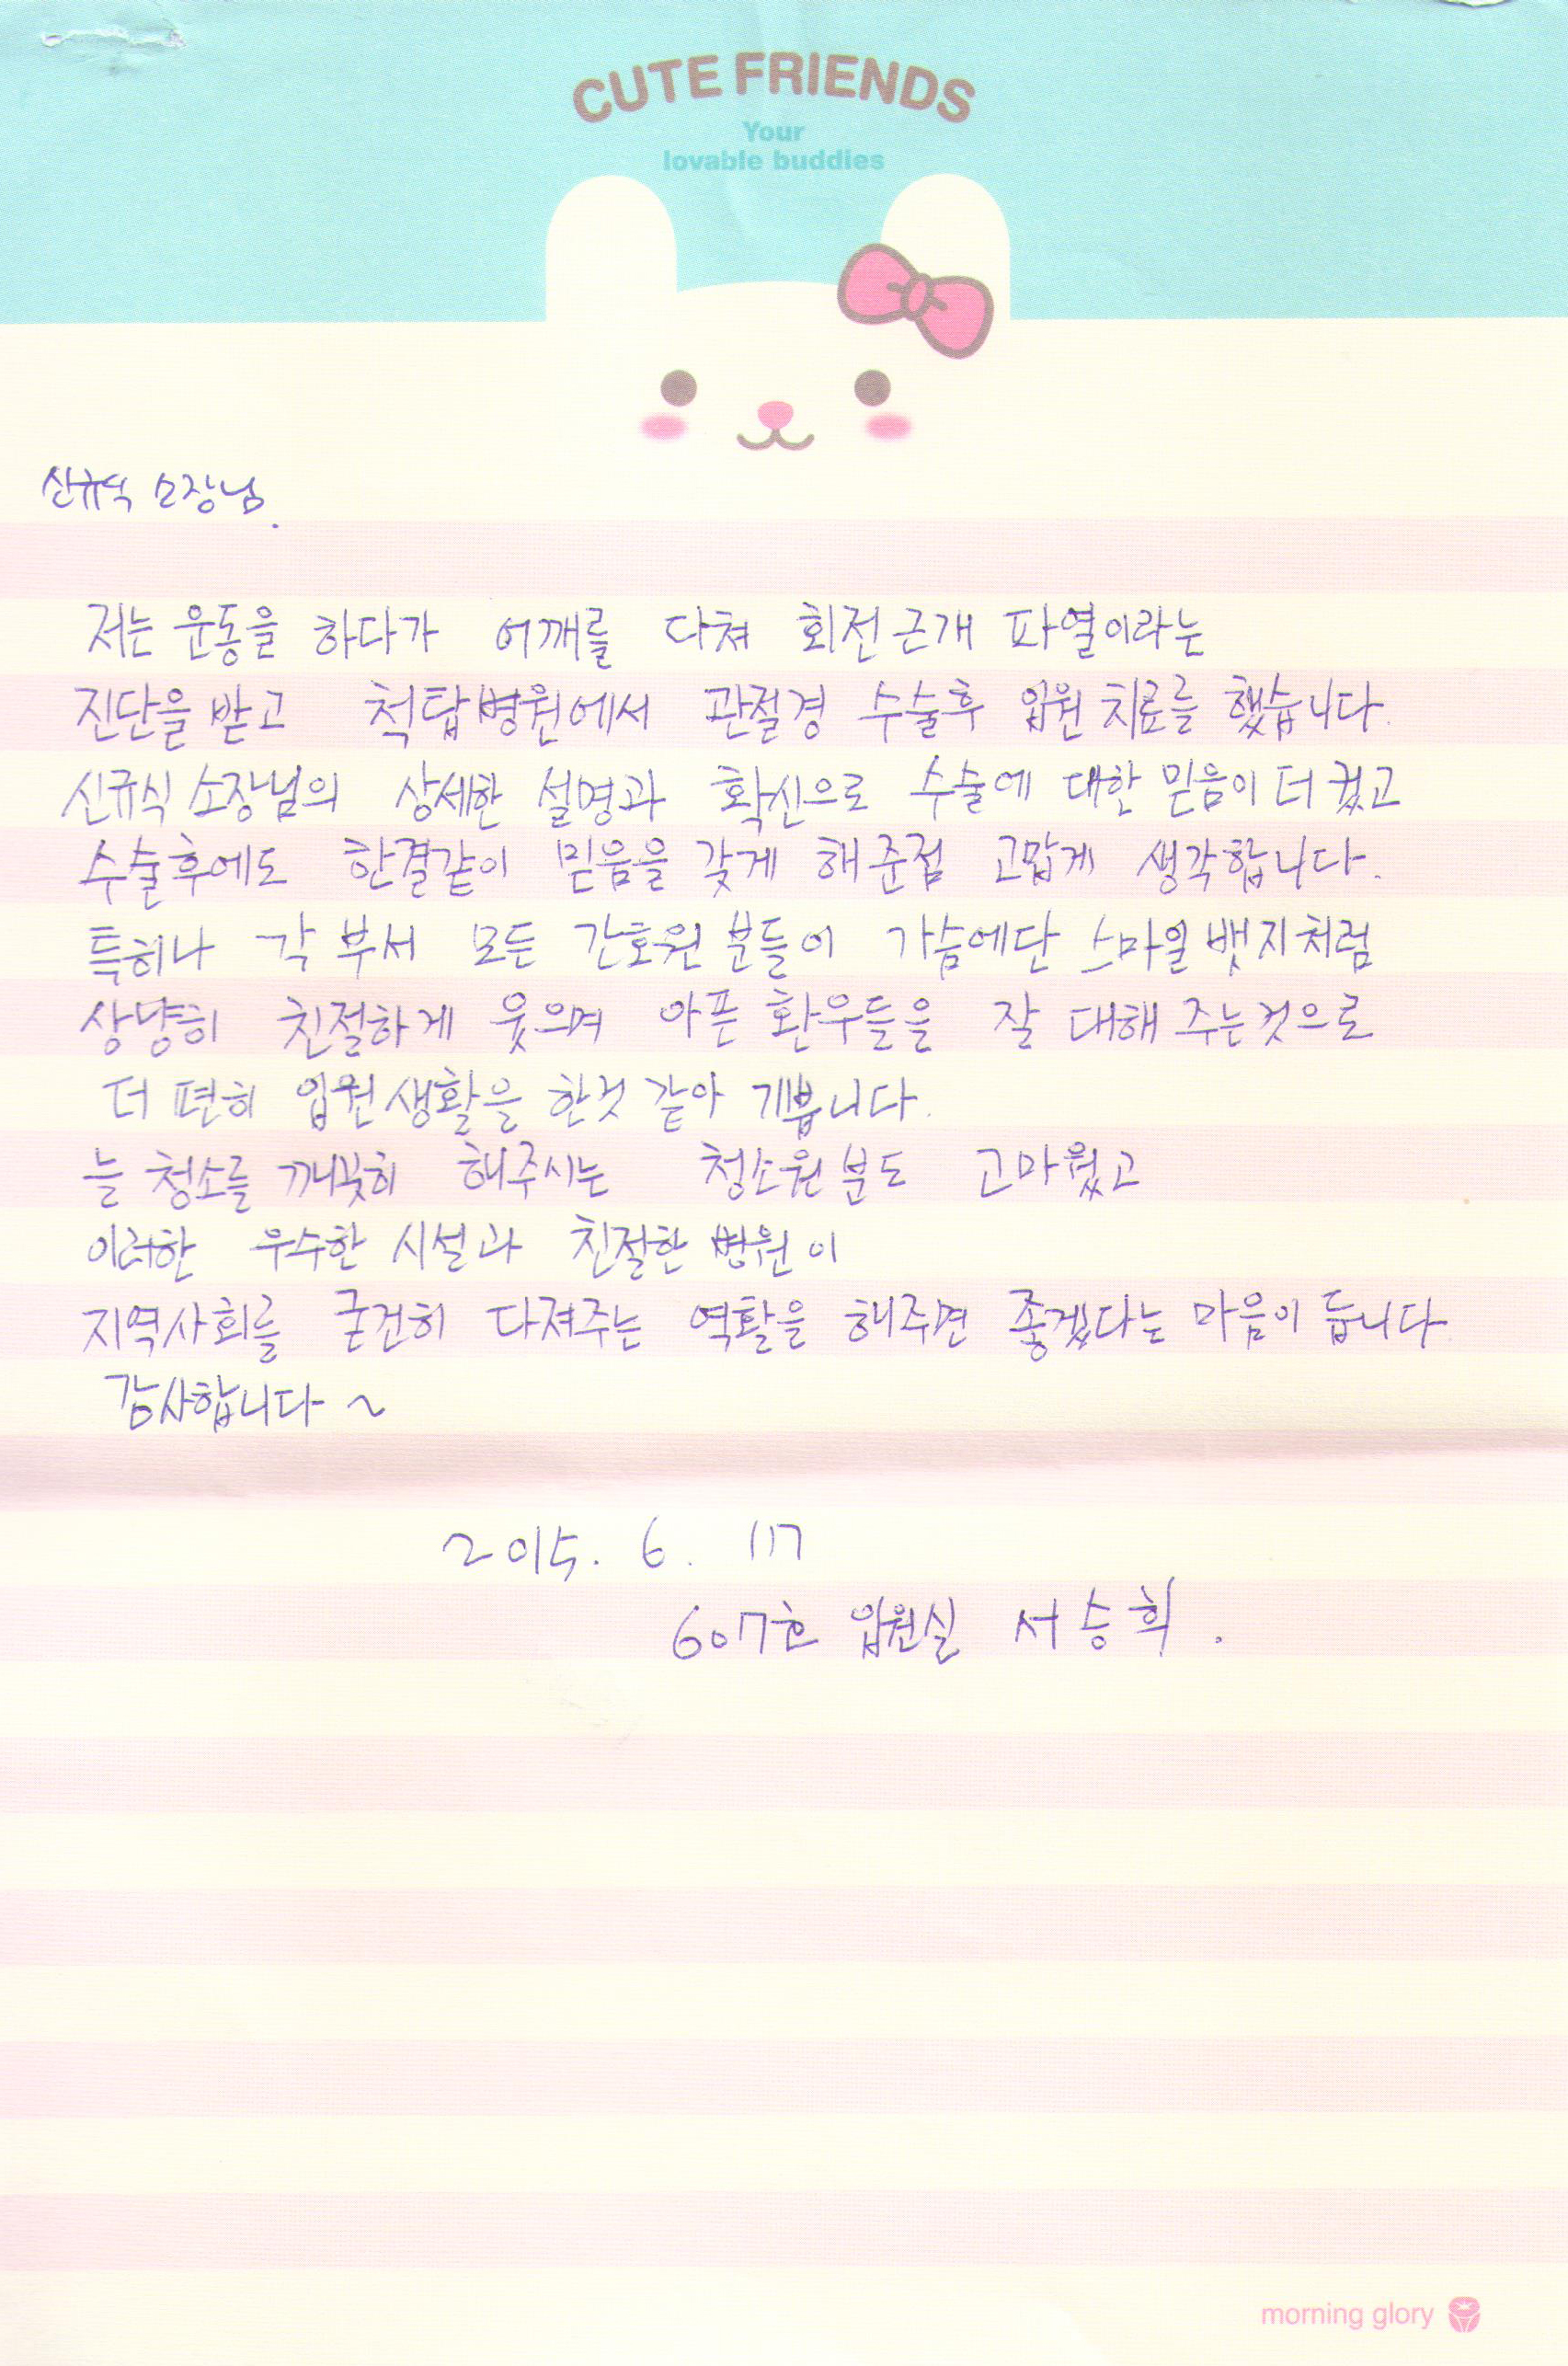 CUTE FRIENDS
Your
lovable buddies
신규식 소장님.
저는 운동을 하다가 어깨를 다쳐 회전근개 파열이라는
진단을 받고 척탑병원에서 관절경 수술후 입원 치료를 했습니다.
신규식 소장님의 상세한 설명과 확신으로 수술에 대한 믿음이 더 컸고
수술후에도 한결같이 믿음을 갖게 해준점 고맙게 생각합니다.
특히나 각 부서 모든 간호원 분들이 가슴에단 스마일 뱃지처럼
상냥히 친절하게 웃으며 아픈 환우들을 잘 대해 주는것으로
더 편히 입원생활을 한것 같아 기쁩니다.
늘 청소를 깨끗히 해주시는 청소원 분도 고마웠고
이러한 우수한 시설과 친절한 병원이
지역사회를 굳건히 다져주는 역활을 해주면 좋겠다는 마음이 듭니다
감사합니다 ~
2015. 6. 17
607호 입원실 서승희.
morning glory